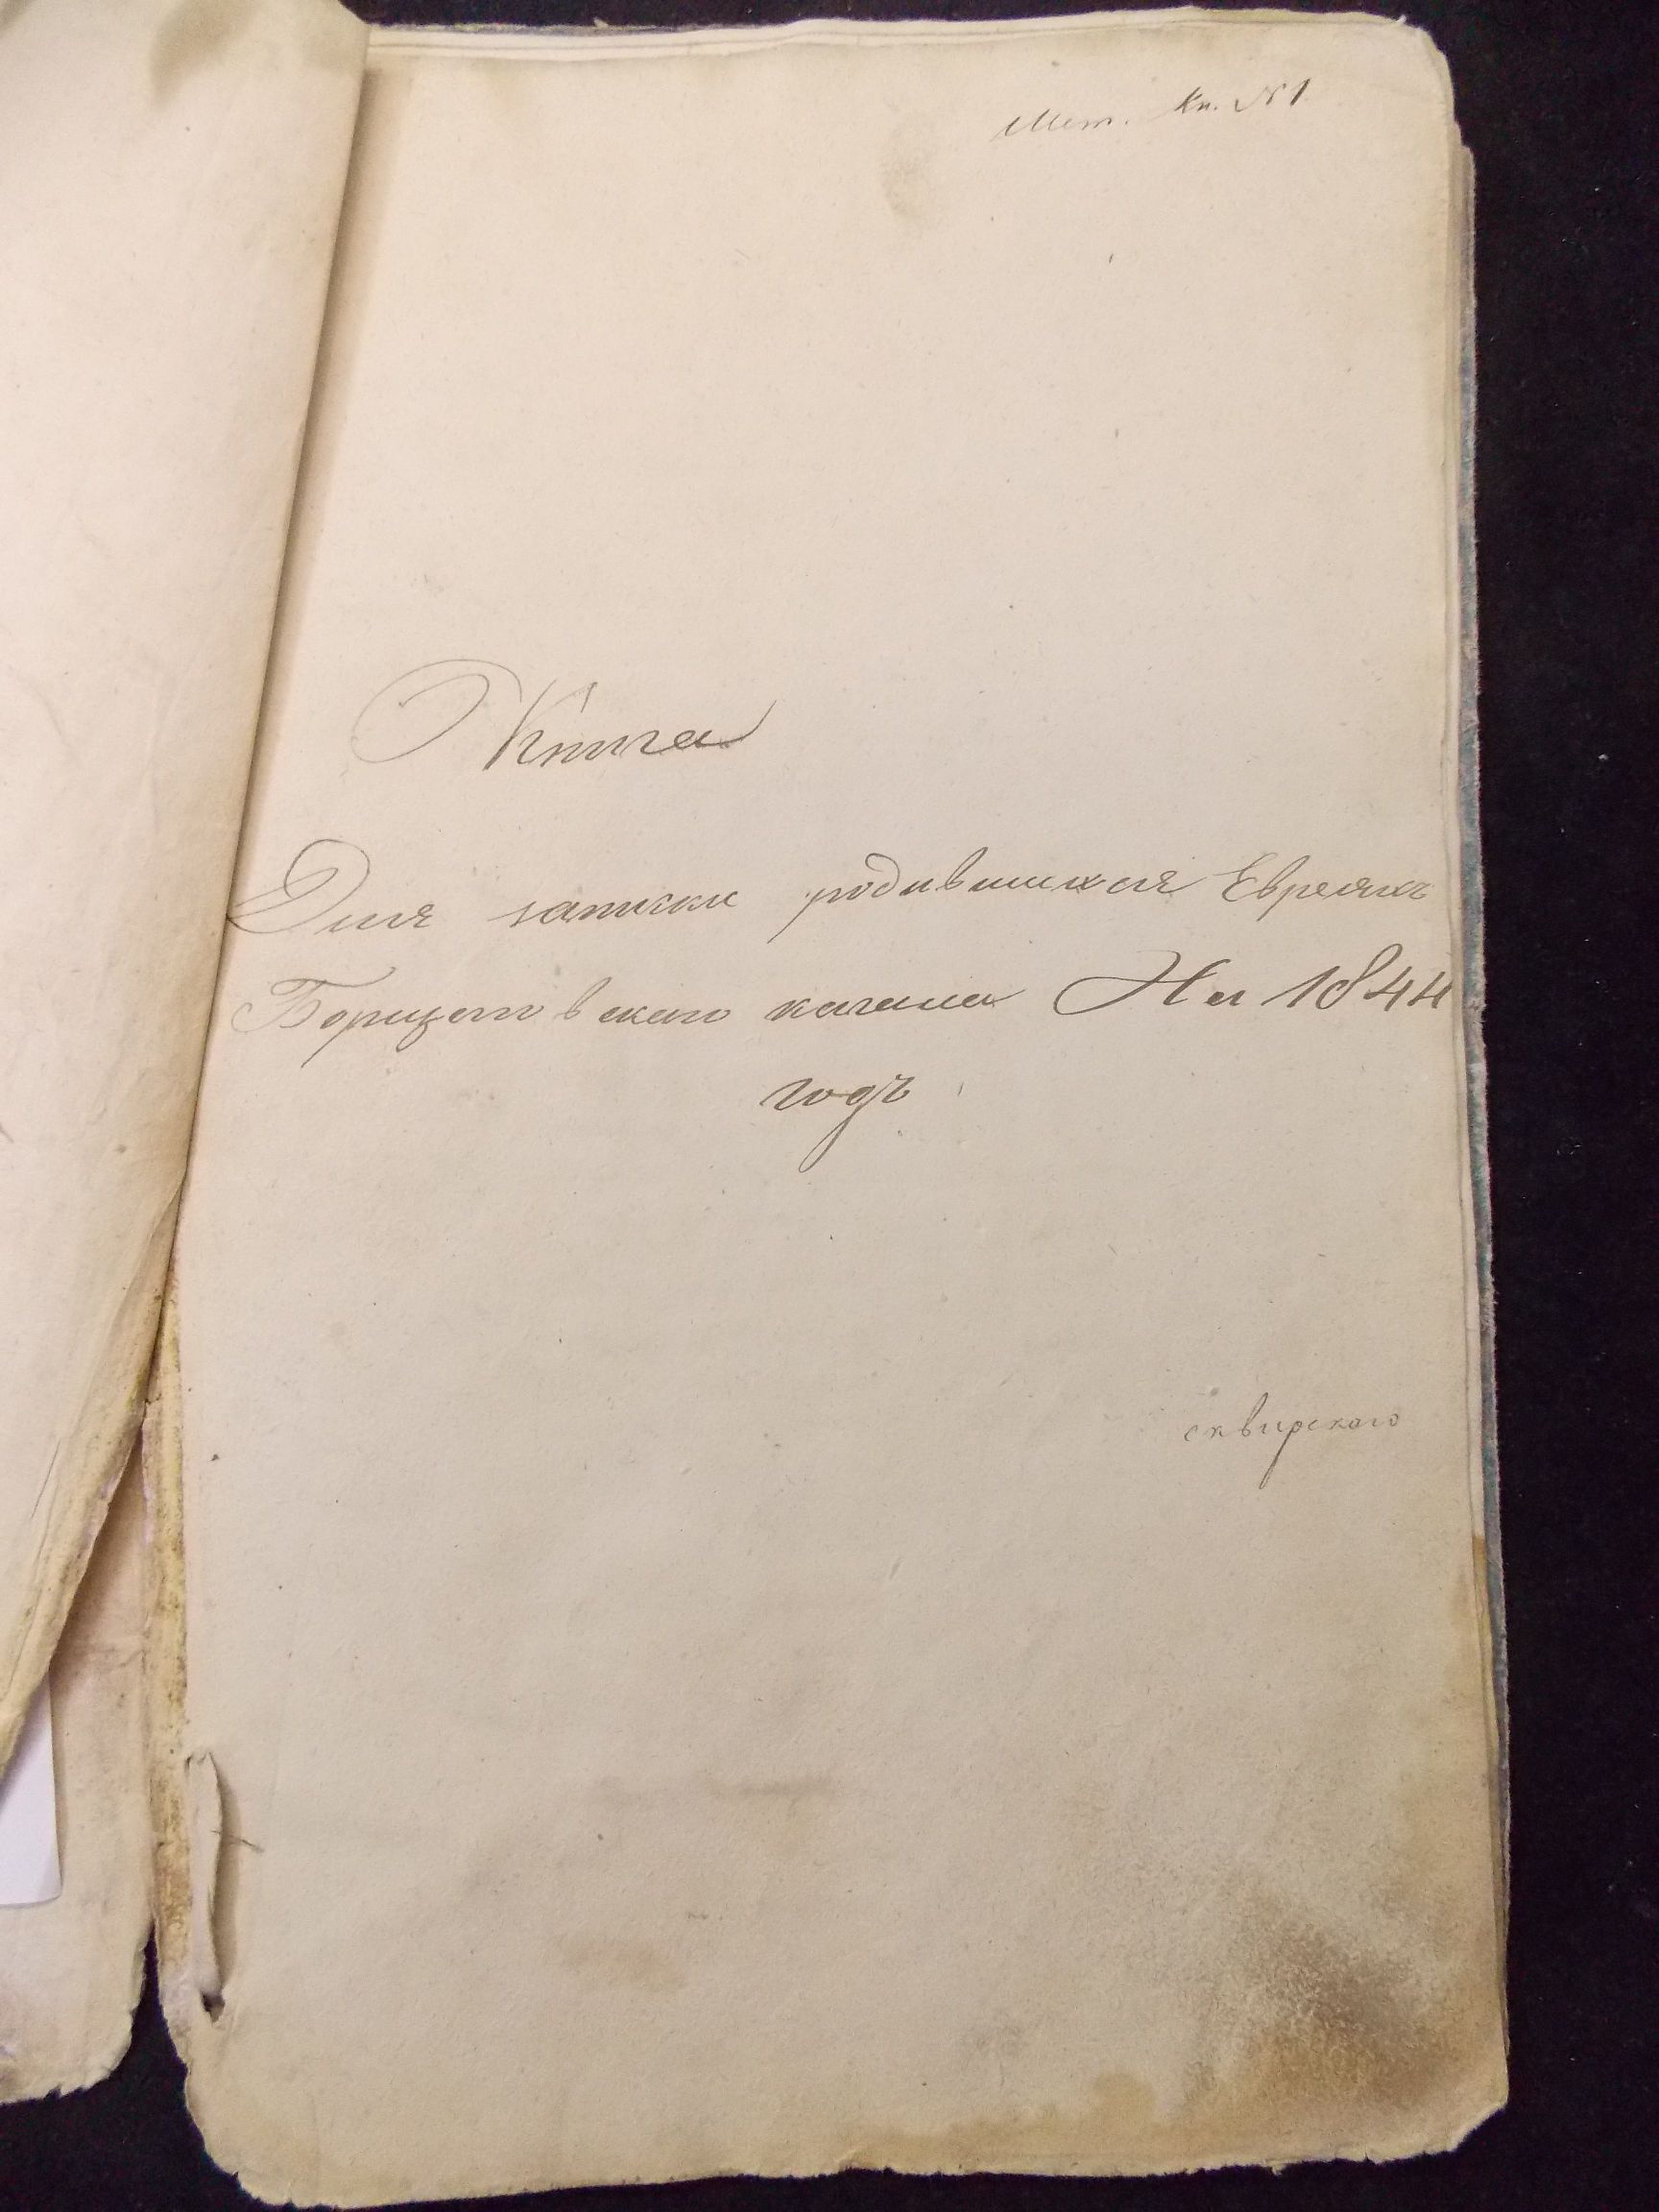 Мет. Кн. №1
Книга
Для записки родившихся Евреяхъ
Борщовского кагала На 1844
годъ
сквирскаго